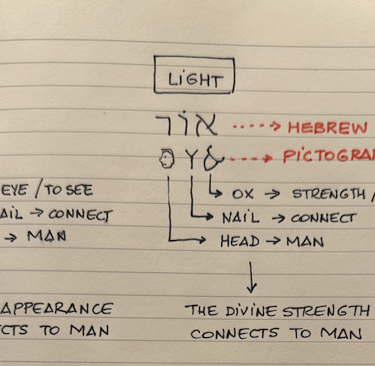 LIGHT
אוֹר → HEBREW
→ PICTOGRA
OX → STRENGTH /
NAIL → CONNECT
HEAD → MAN
THE DIVINE STRENGTH
CONNECTS TO MAN
EYE / TO SEE
AIL → CONNECT
→ MAN
APPEARANCE
CTS TO MAN